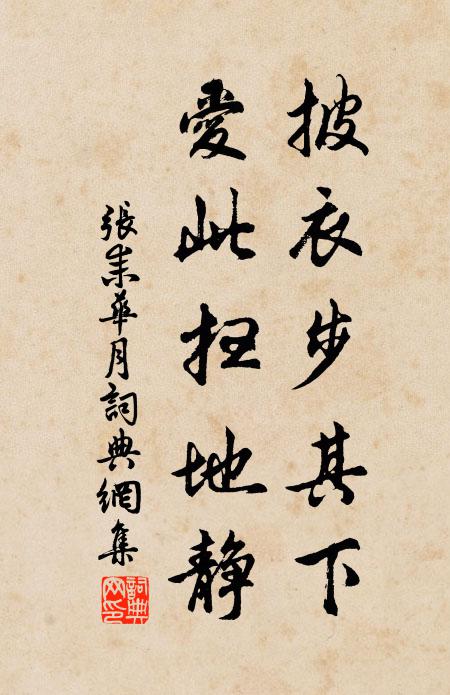 披衣步其下
愛此扫地静
張耒華月詞典網集
詞典网印